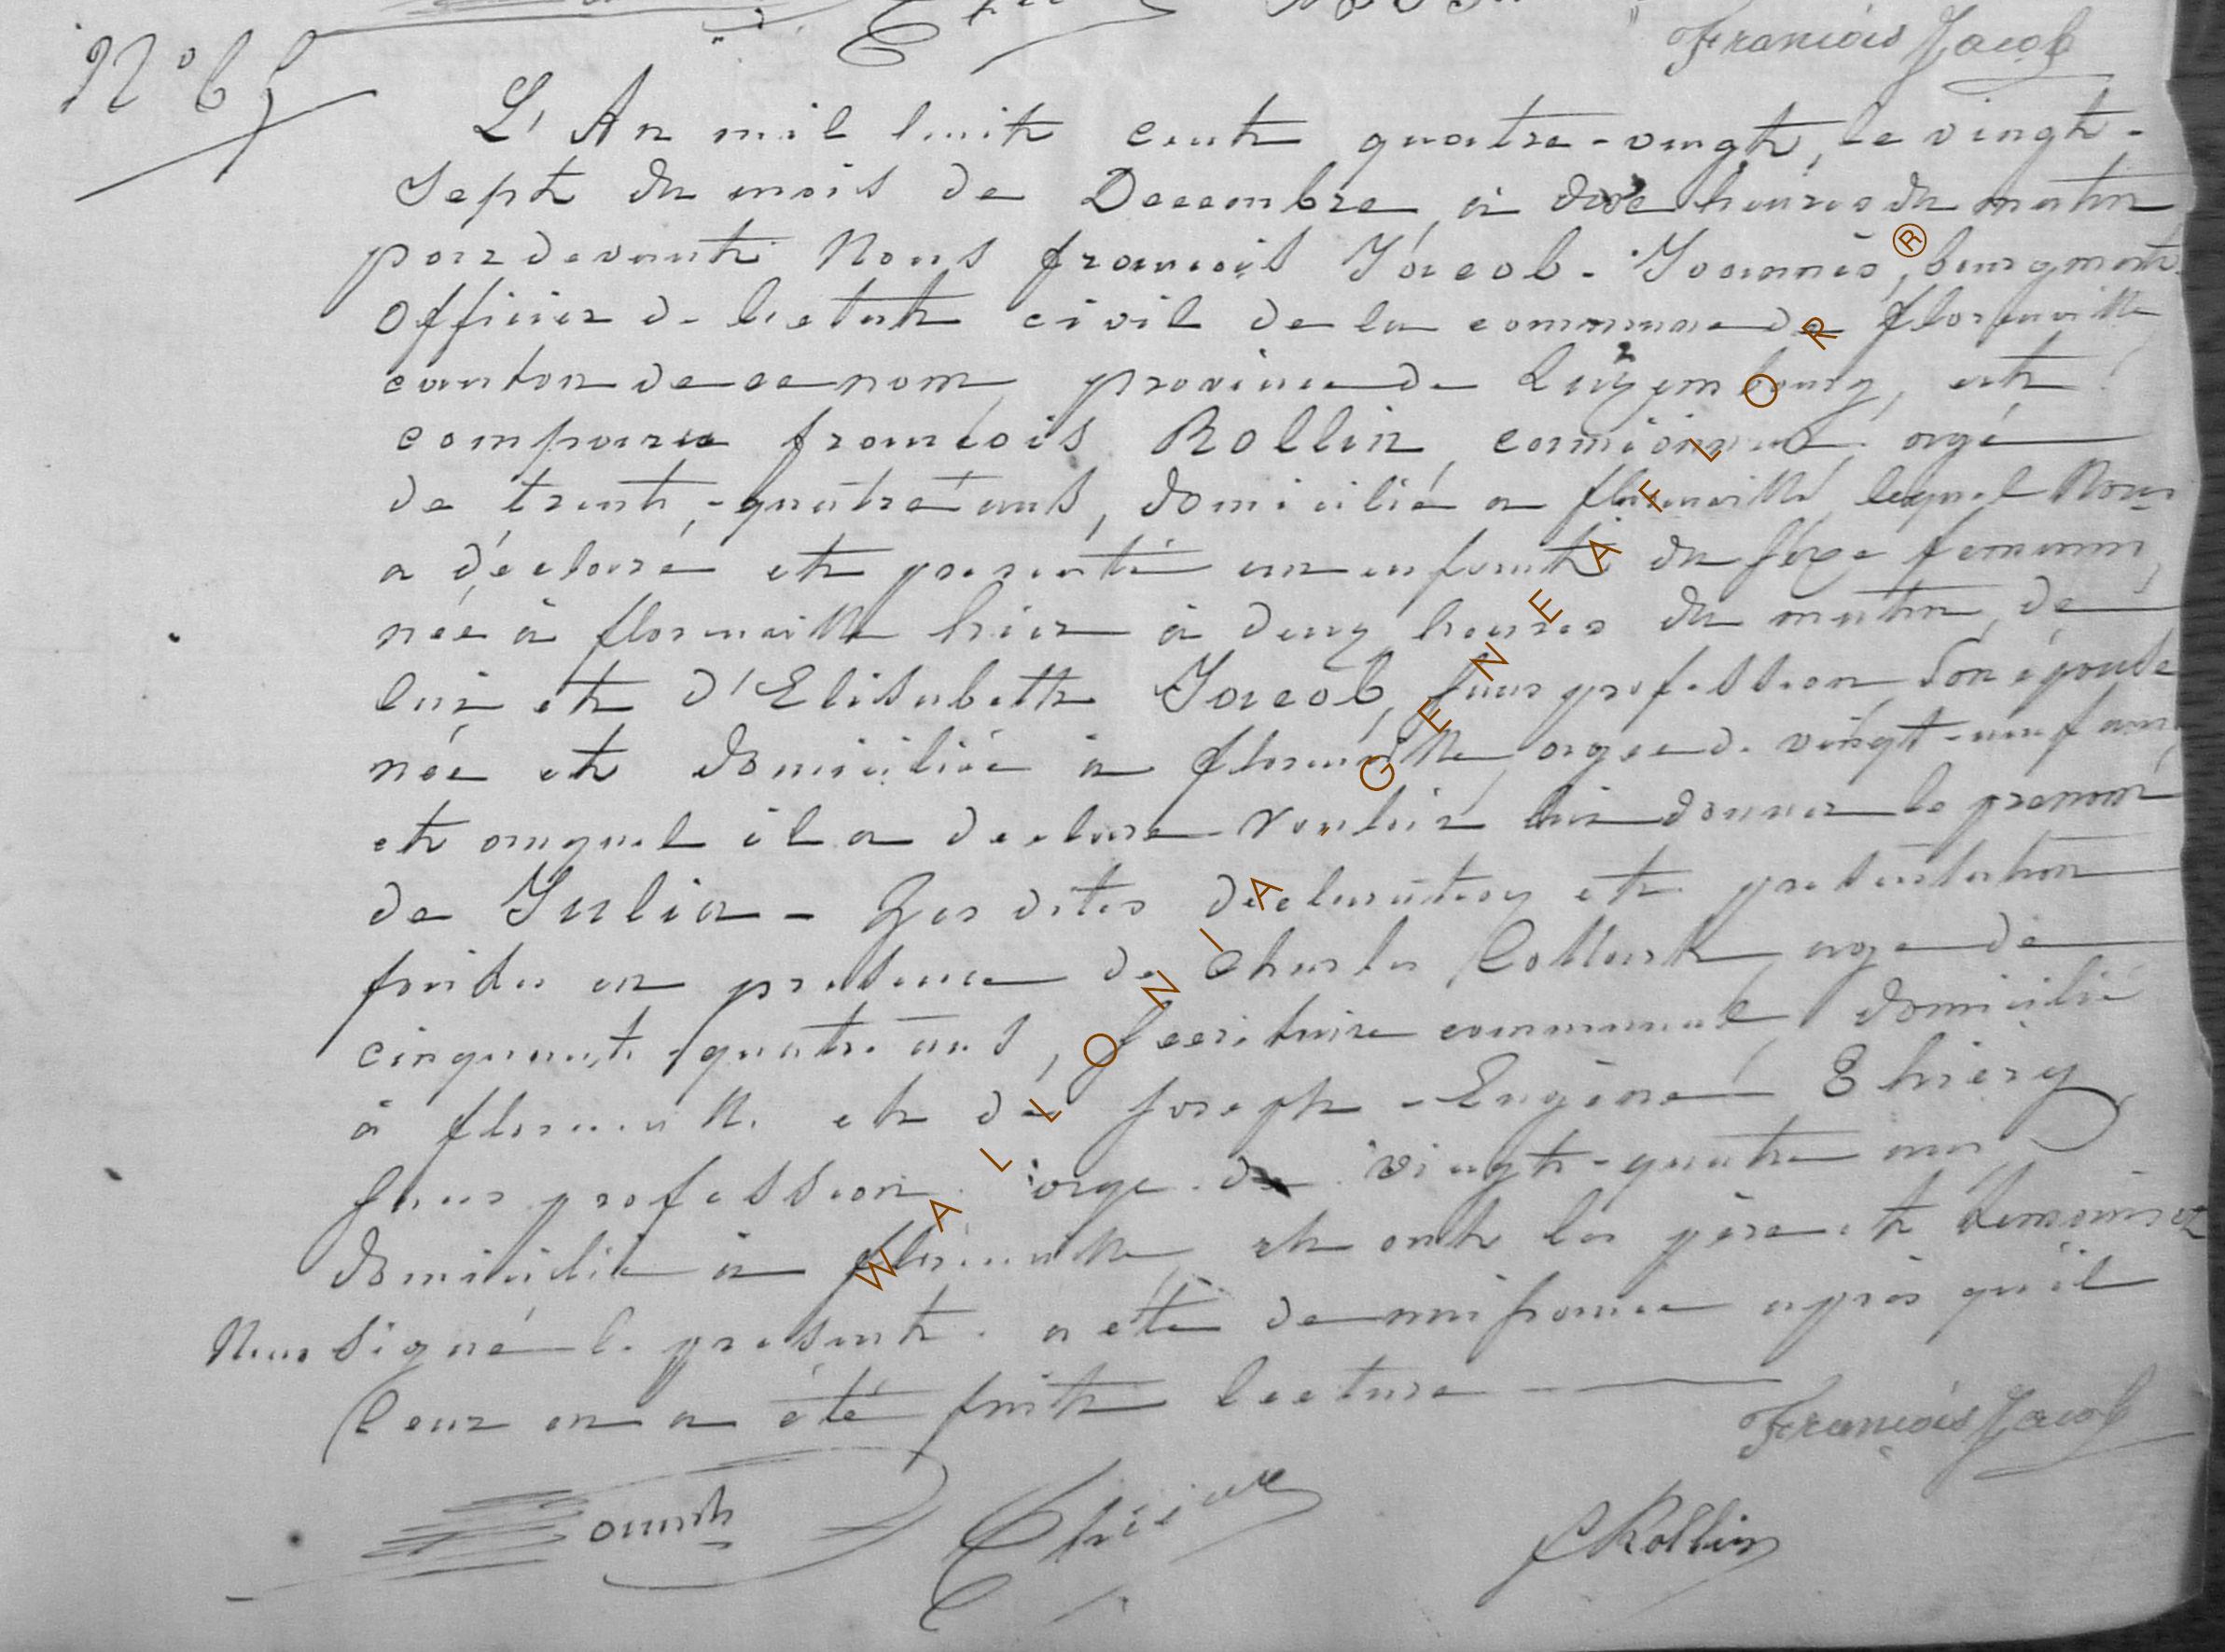 François Jacob
N° 65
L'An mil huit cent quatre-vingt, le vingt-
sept du mois de Decembre, à dix heures du matin
pardevant Nous françois Jacob-Joannès, bourgmestre
officier de l'etat civil de la commune de florenville
canton de ce nom, province de Luxembourg, est
comparu françois Rollin, âgé
de trente-quatre ans, domicilié a florenville, lequel Nous
a déclaré et presenté un enfant du sexe feminin,
née à florenville hier à deux heures du matin, de
lui et d'Elisabeth Jacob, sans profession son épouse
née et domiciliée à florenville, agee de vingt-neuf ans,
et auquel il a declaré vouloir lui donner le prenom
de Julia - Les dites déclaration et presentation
faites en presence de Charles Collard, age de
cinquante-quatre ans, secrétaire communal, domicilié
à florenville et de Joseph-Eugène Thiery
sans profession, age de vingt-quatre ans
domicilié à florenville, et ont les père et témoins
Nous signé le present. a été de mauifrance après qu'il
leur en a été fait lecture
François Jacob
Thiery
f Rollin
WALLONIA GENEAFLOR ®